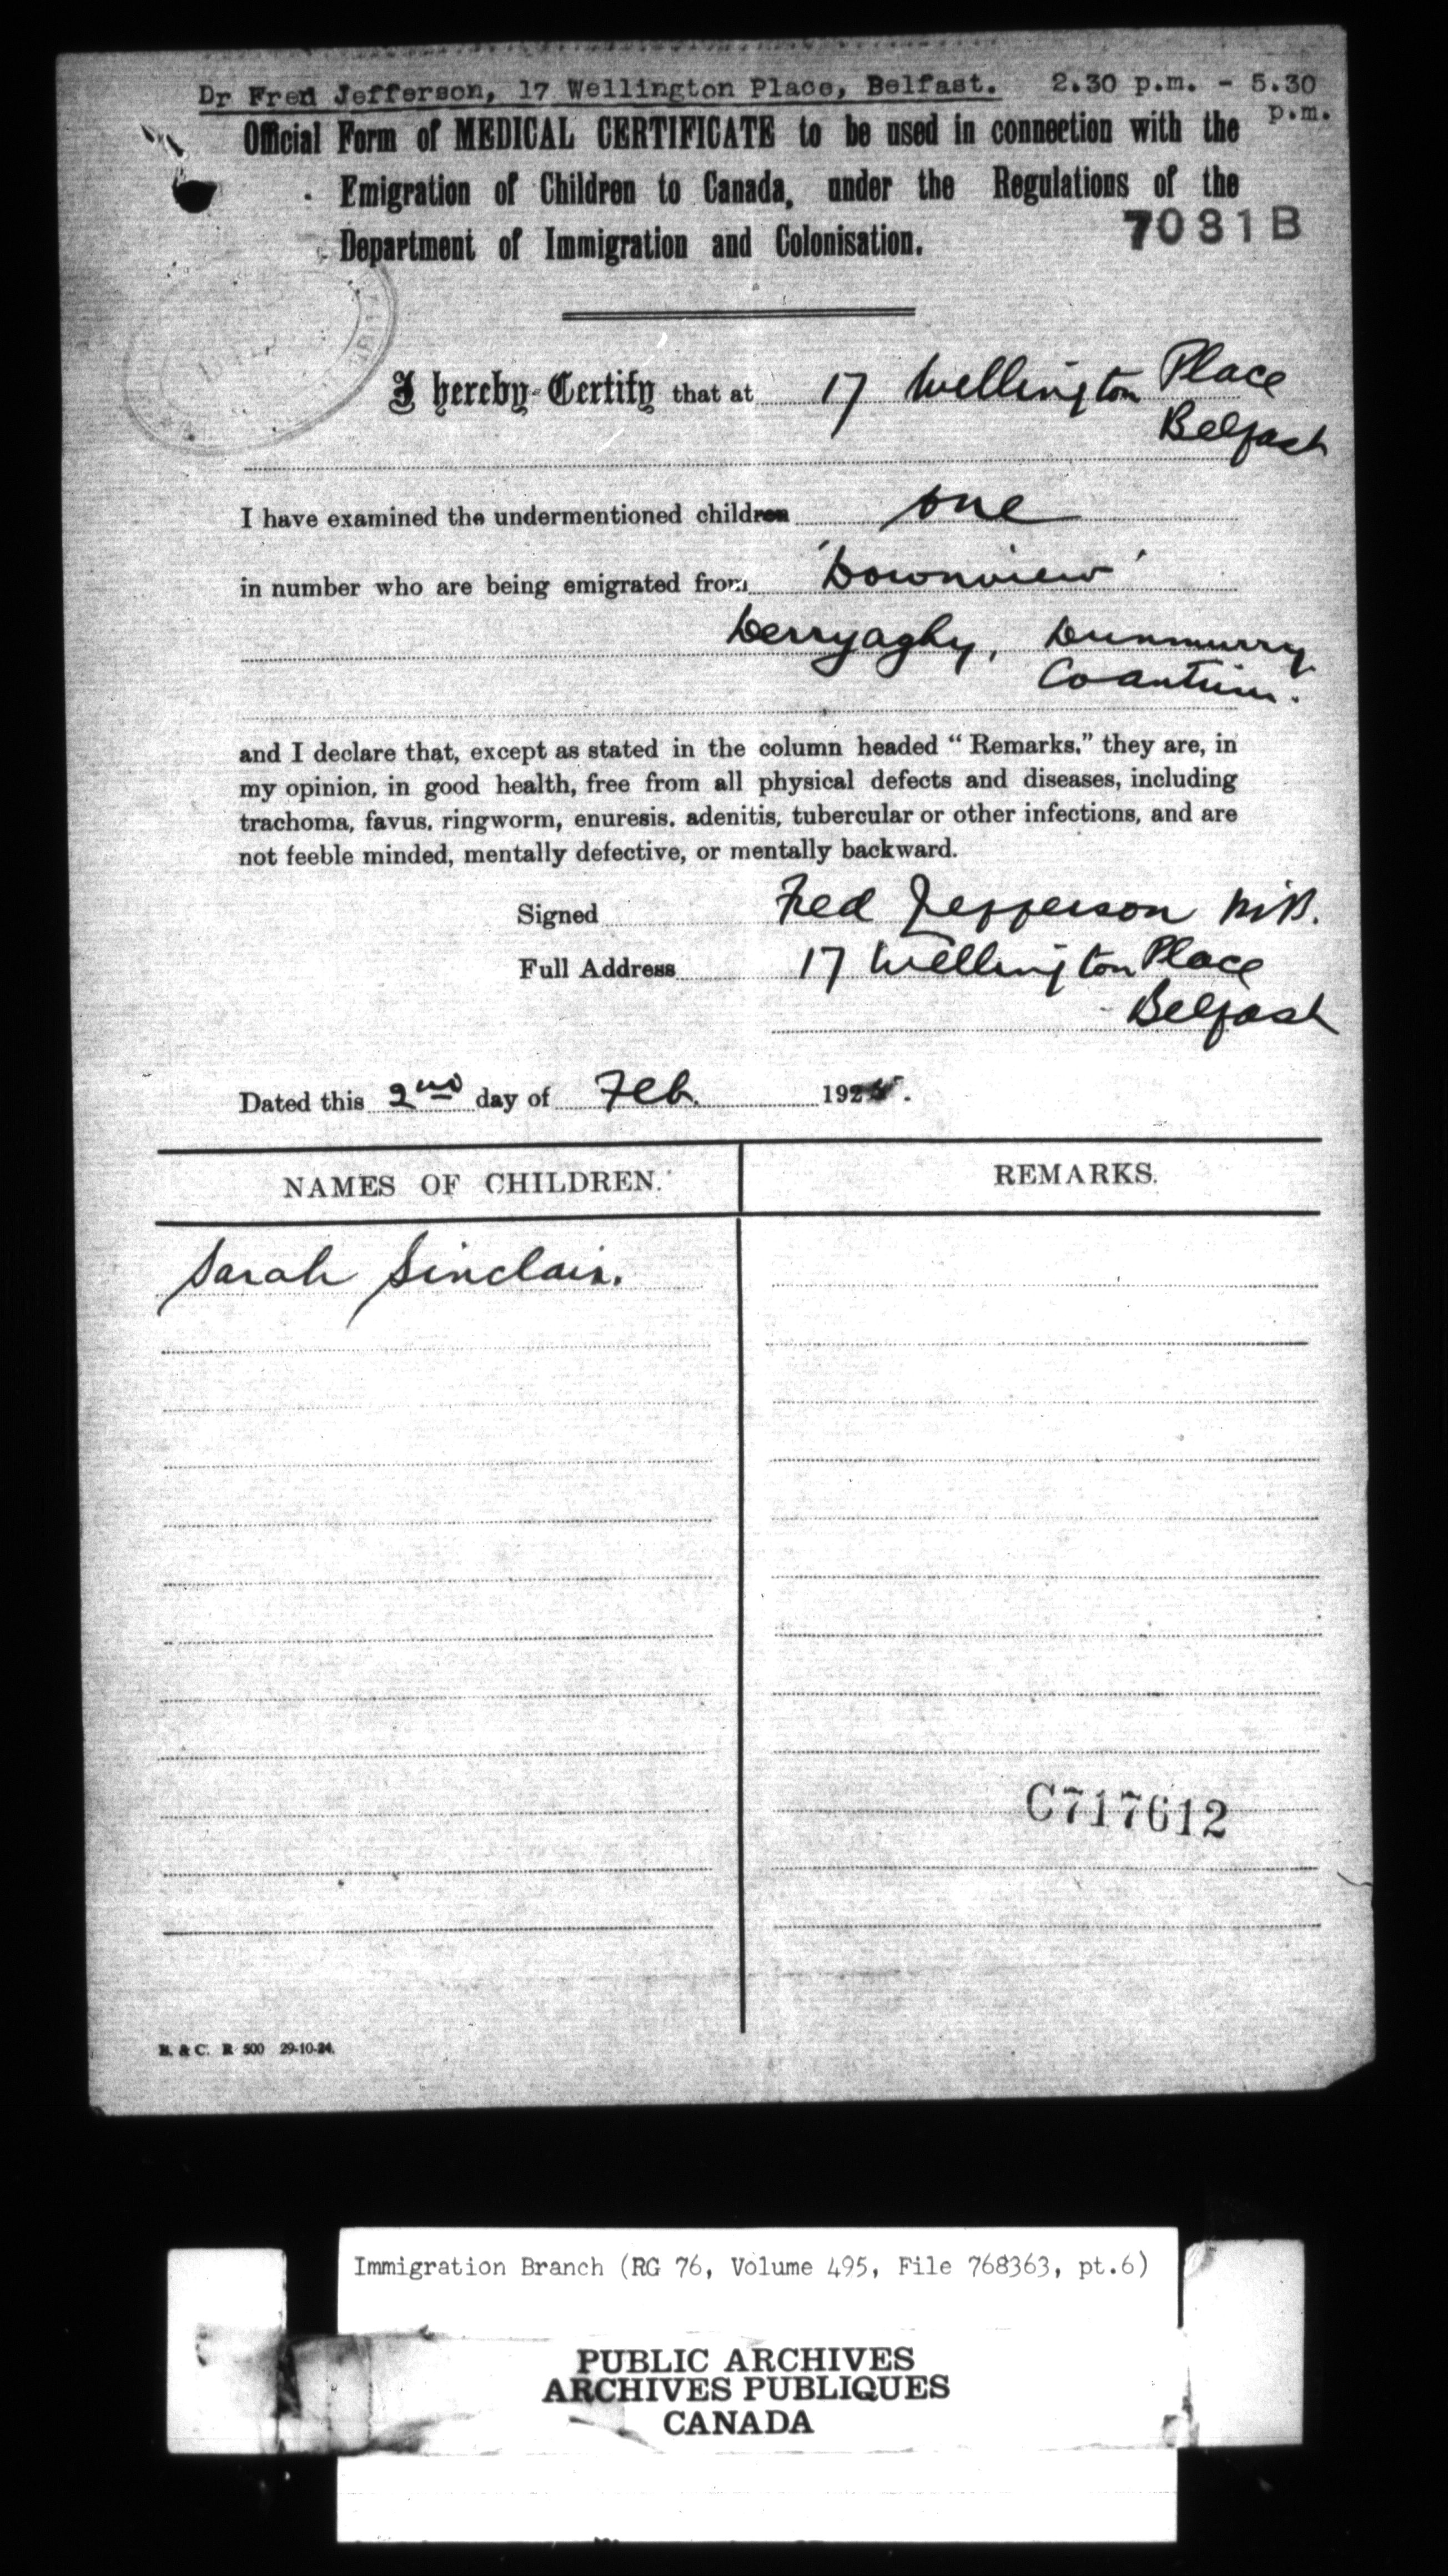 Dr Fred Jefferson, 17 Wellington Place, Belfast. 2.30 p.m. - 5.30
p.m.
Official Form of MEDICAL CERTIFICATE to be used in connection with the
Emigration of Children to Canada, under the Regulations of the
Department of Immigration and Colonisation.
7031B
I hereby Certify that at 17 Wellington Place
Belfast
I have examined the undermentioned children one
in number who are being emigrated from 'Downview'
Derryaghy, Dunmurry
Co Antrim.
and I declare that, except as stated in the column headed “Remarks,” they are, in
my opinion, in good health, free from all physical defects and diseases, including
trachoma, favus, ringworm, enuresis, adenitis, tubercular or other infections, and are
not feeble minded, mentally defective, or mentally backward.
Signed Fred Jefferson M.B.
Full Address 17 Wellington Place
Belfast
Dated this 2nd day of Feb. 1925.
NAMES OF CHILDREN. REMARKS.
Sarah Sinclair.
C717612
B. & C. R 500 29-10-24.
Immigration Branch (RG 76, Volume 495, File 768363, pt.6)
PUBLIC ARCHIVES
ARCHIVES PUBLIQUES
CANADA